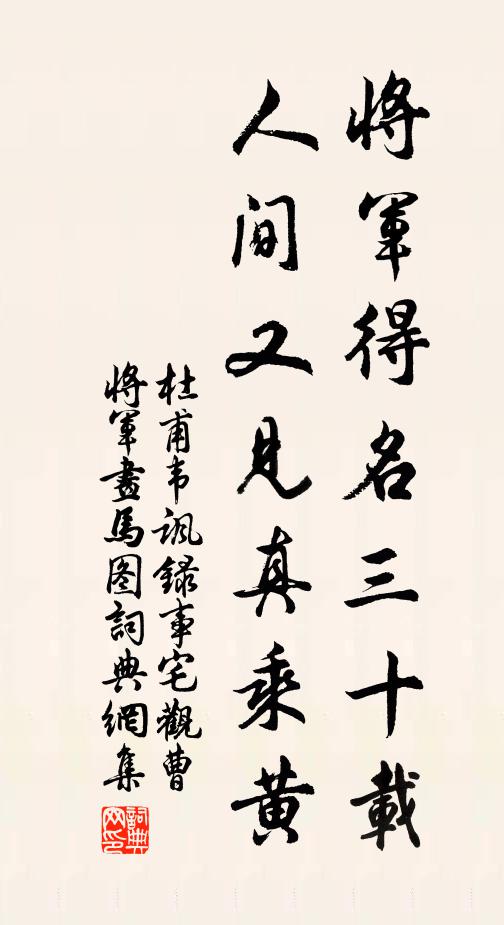 將軍得名三十載
人间又見真乘黄
杜甫韦諷録事宅觀曹
將軍畫馬图詞典網集
詞典
网印